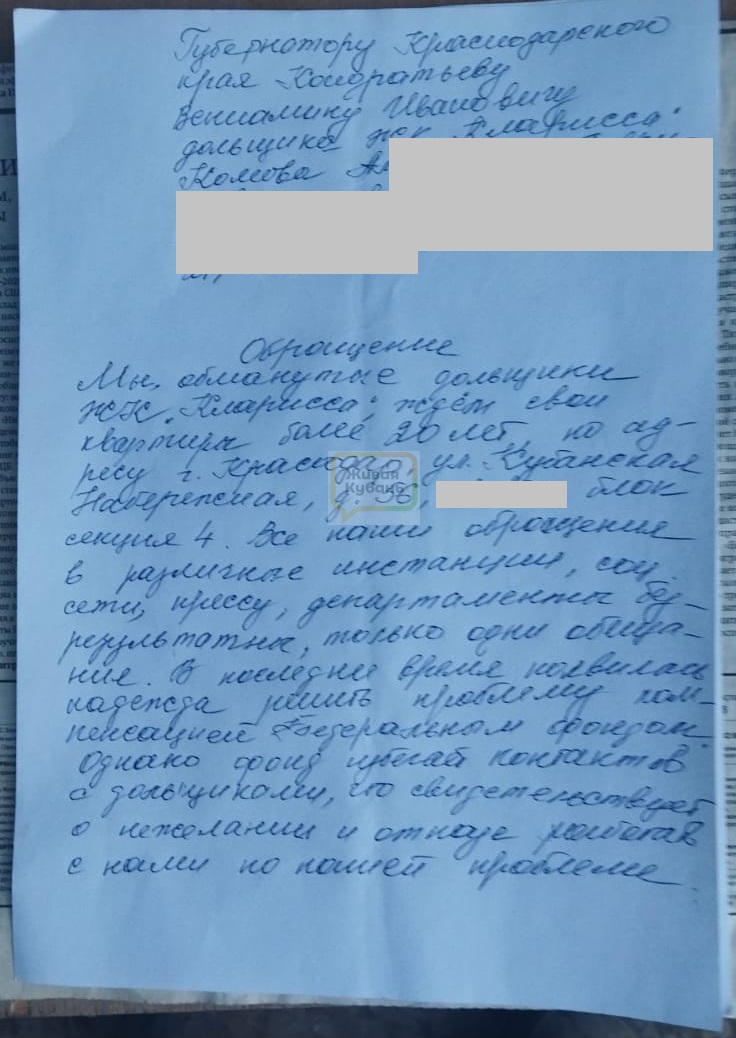 Губернатору Краснодарского
края Кондратьеву
Вениамину Ивановичу
дольщика ЖК "Кларисса"
Комова
Обращение
Мы, обманутые дольщики
ЖК "Кларисса", ждём свои
квартиры более 20 лет по ад-
ресу г. Краснодар, ул. Кубанская
Набережная, д. блок
секция 4. Все наши обращения
в различные инстанции, соц.
сети, прессу, департаменты бе-
зрезультатны, только одни обеща-
ния. В последнее время появилась
надежда решить проблему ком-
пенсацией Федеральным фондом.
Однако фонд избегает контактов
с дольщиками, что свидетельствует
о нежелании и отказе работать
с нами по нашей проблеме.
Живая
Кубань